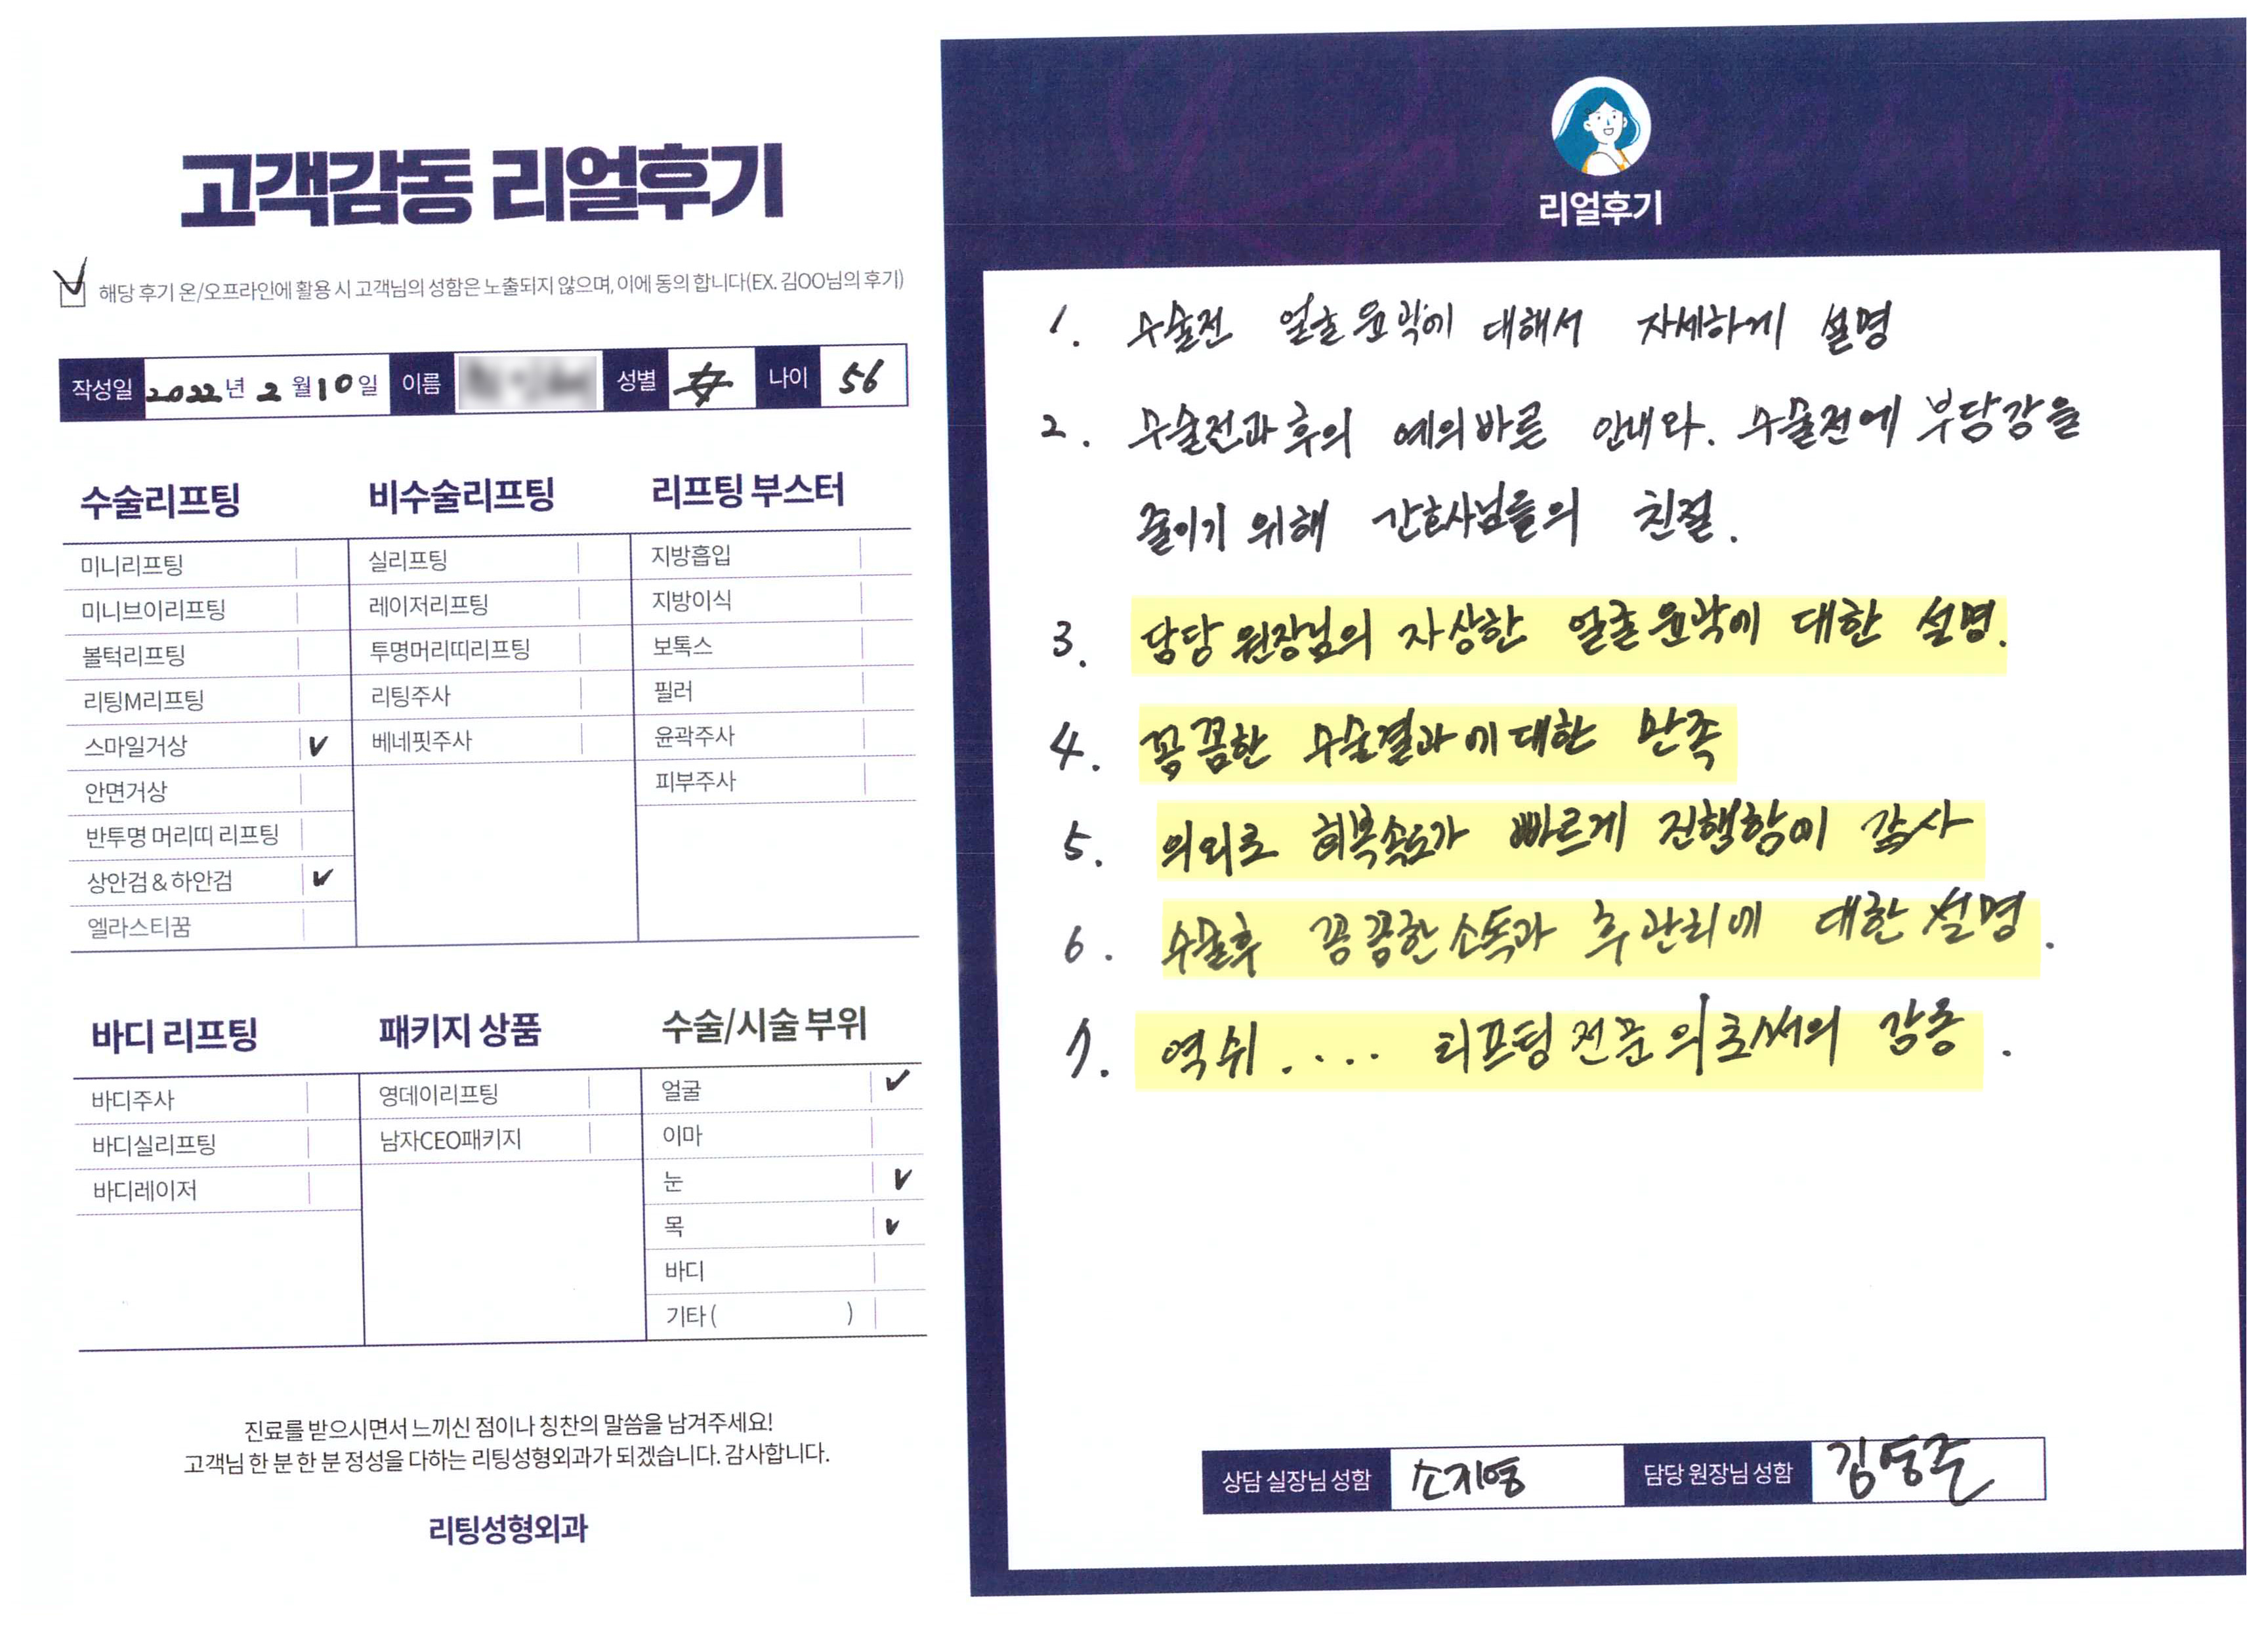 고객감동 리얼후기
해당 후기 온/오프라인에 활용 시 고객님의 성함은 노출되지 않으며, 이에 동의 합니다(EX. 김OO님의 후기)
작성일 2022년 2월 10일 이름 성별 女 나이 56
수술리프팅
미니리프팅
미니브이리프팅
볼턱리프팅
리팅M리프팅
스마일거상 ✓
안면거상
반투명 머리띠 리프팅
상안검 & 하안검 ✓
엘라스티꿈
비수술리프팅
실리프팅
레이저리프팅
투명머리띠리프팅
리팅주사
베네핏주사
리프팅 부스터
지방흡입
지방이식
보톡스
필러
윤곽주사
피부주사
바디 리프팅
바디주사
바디실리프팅
바디레이저
패키지 상품
영데이리프팅
남자CEO패키지
수술/시술 부위
얼굴 ✓
이마
눈 ✓
목 ✓
바디
기타 ( )
진료를 받으시면서 느끼신 점이나 칭찬의 말씀을 남겨주세요!
고객님 한 분 한 분 정성을 다하는 리팅성형외과가 되겠습니다. 감사합니다.
리팅성형외과
리얼후기
1. 수술전 얼굴 윤곽에 대해서 자세하게 설명
2. 수술전과 후의 예의바른 안내와. 수술전에 부담감을
줄이기 위해 간호사님들의 친절.
3. 담당 원장님의 자상한 얼굴 윤곽에 대한 설명.
4. 꼼꼼한 수술결과에 대한 만족
5. 의외로 회복속도가 빠르게 진행함이 감사
6. 수술후 꼼꼼한 소독과 후관리에 대한 설명.
7. 역쉬.... 리프팅 전문의로써의 감동.
상담 실장님 성함 소지영 담당 원장님 성함 김영준